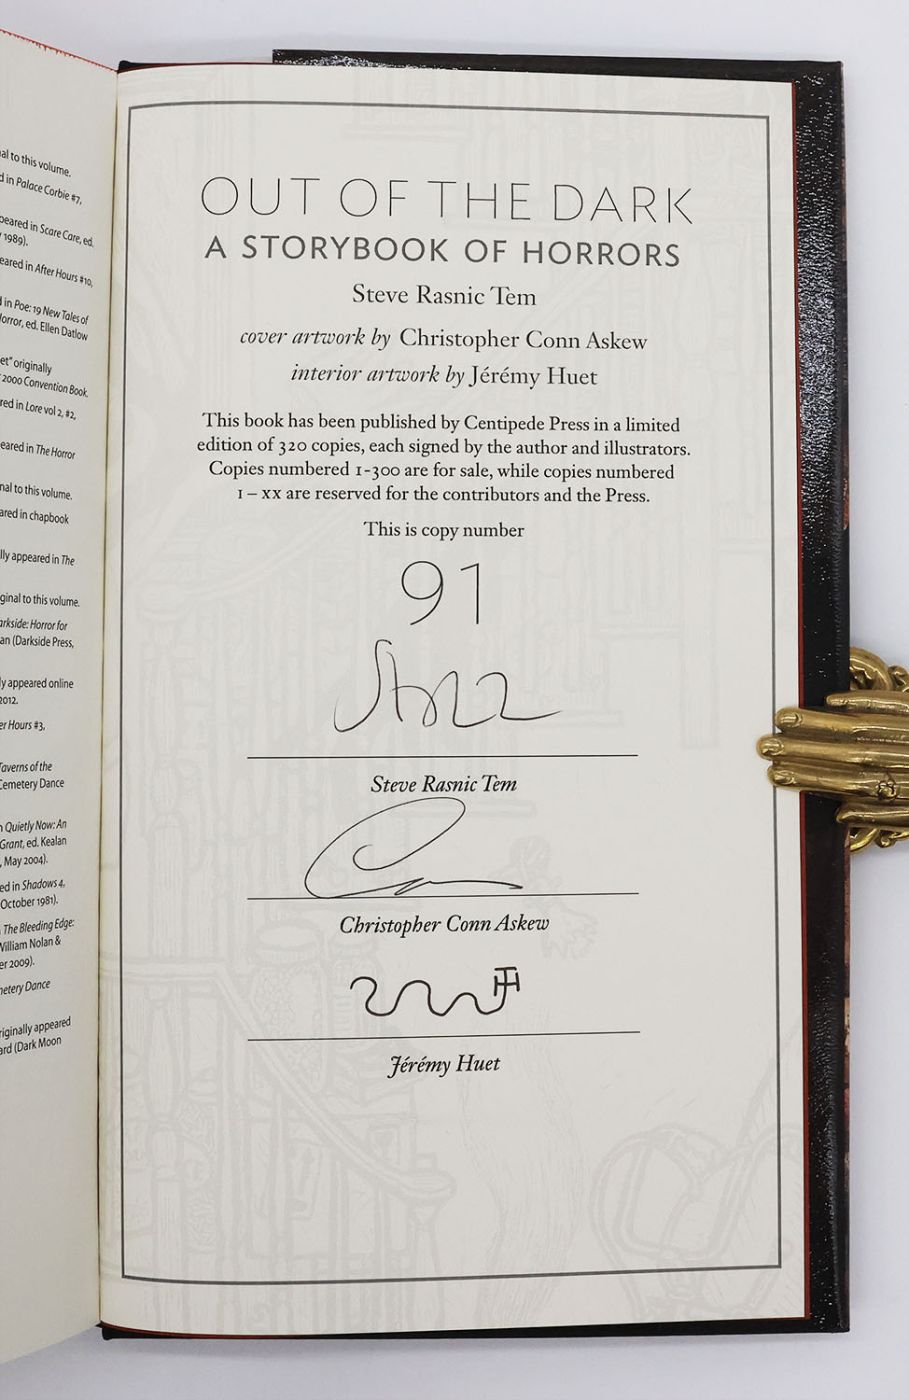 al to this volume.
d in Palace Corbie #7,
peared in Scare Care, ed.
1989).
eared in After Hours #10,
l in Poe: 19 New Tales of
orror, ed. Ellen Datlow
et" originally
2000 Convention Book.
red in Lore vol 2, #2,
eared in The Horror
nal to this volume.
ared in chapbook
lly appeared in The
ginal to this volume.
arkside: Horror for
an (Darkside Press,
ly appeared online
2012.
er Hours #3,
Taverns of the
Cemetery Dance
n Quietly Now: An
Grant, ed. Kealan
, May 2004).
ed in Shadows 4,
October 1981).
The Bleeding Edge:
William Nolan &
er 2009).
metery Dance
riginally appeared
ard (Dark Moon
OUT OF THE DARK
A STORYBOOK OF HORRORS
Steve Rasnic Tem
cover artwork by Christopher Conn Askew
interior artwork by Jérémy Huet
This book has been published by Centipede Press in a limited
edition of 320 copies, each signed by the author and illustrators.
Copies numbered 1-300 are for sale, while copies numbered
I – XX are reserved for the contributors and the Press.
This is copy number
91
Steve Rasnic Tem
Christopher Conn Askew
Jérémy Huet